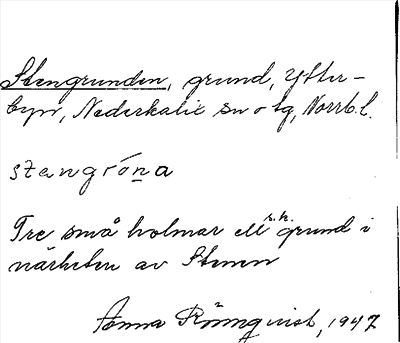 Stengrunden, grund, Ytter-
byn, Nederkalix sn o tg, Norrb.l.
stengróna
Tre små holmar ell s.k. grund i
närheten av Stenen
Anna Rönnqvist, 1947